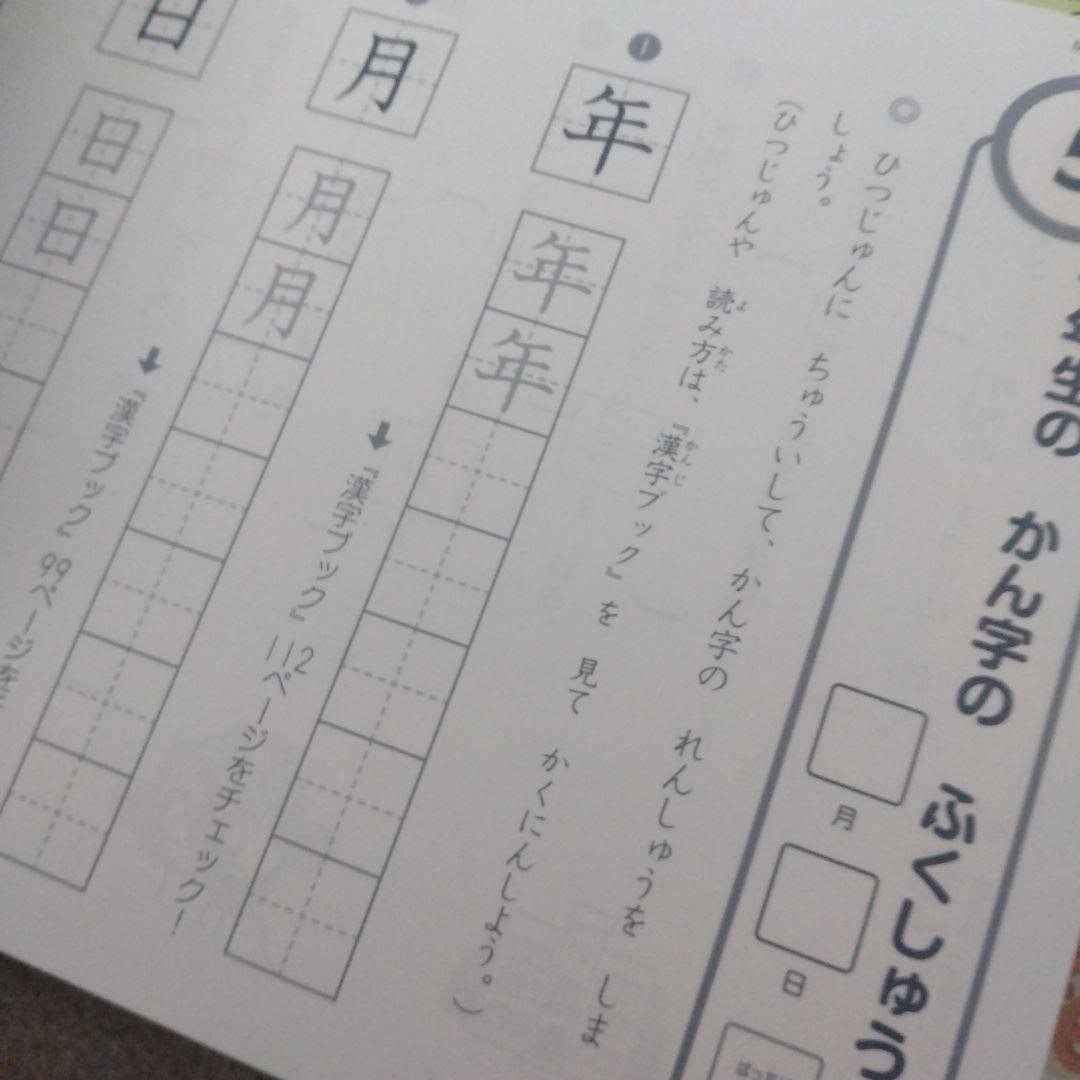 5
年生の かん字の ふくしゅう
月
日
◎ ひつじゅんに ちゅういして、かん字の れんしゅうを しま
しょう。
(ひつじゅんや 読み方は、『漢字ブック』を 見て かくにんしよう。)
1
年
年
年
➡『漢字ブック』112ページをチェック!
月
月
月
➡『漢字ブック』99ページを
日
日
日